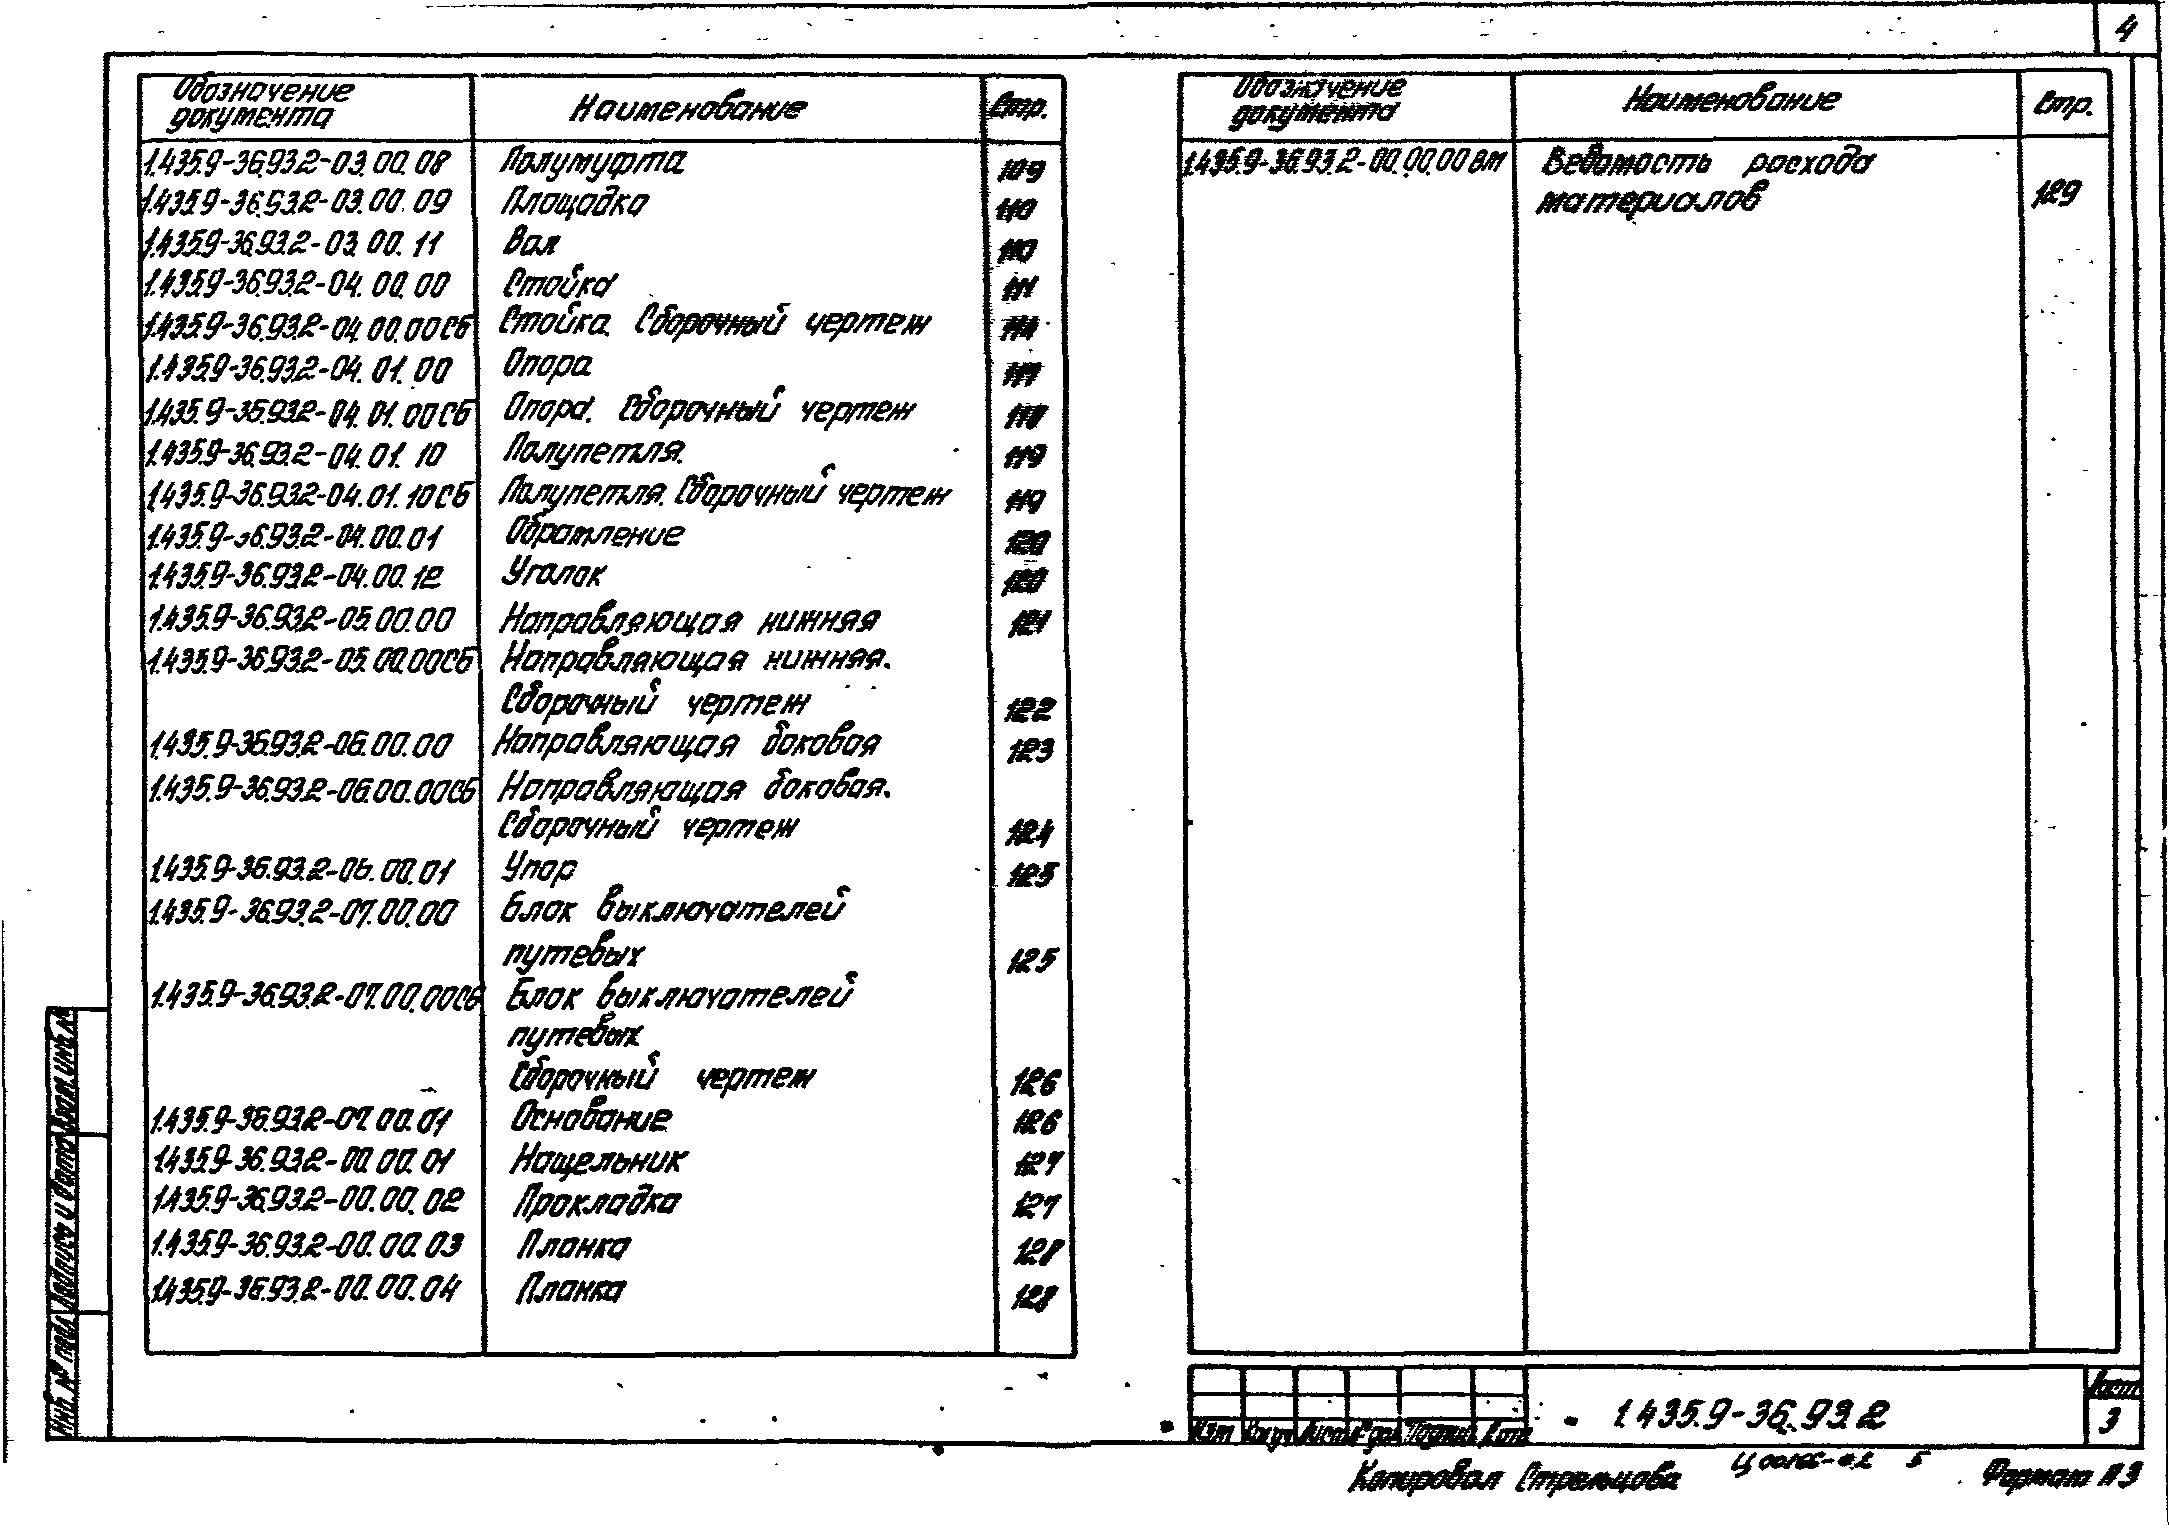 4
Обозначение документа Наименование Стр.
1.435.9-36.93.2-03.00.08 Полумуфта 109
1.435.9-36.93.2-03.00.09 Площадка 110
1.435.9-36.93.2-03.00.11 Вал 110
1.435.9-36.93.2-04.00.00 Стойка 111
1.435.9-36.93.2-04.00.00СБ Стойка. Сборочный чертеж
1.435.9-36.93.2-04.01.00 Опора 117
1.435.9-36.93.2-04.01.00СБ Опора. Сборочный чертеж 118
1.435.9-36.93.2-04.01.10 Полупетля. 119
1.435.9-36.93.2-04.01.10СБ Полупетля. Сборочный чертеж 119
1.435.9-36.93.2-04.00.01 Обрамление 120
1.435.9-36.93.2-04.00.12 Уголок 120
1.435.9-36.93.2-05.00.00 Направляющая нижняя 121
1.435.9-36.93.2-05.00.00СБ Направляющая нижняя.
Сборочный чертеж 122
1.435.9-36.93.2-06.00.00 Направляющая боковая 123
1.435.9-36.93.2-06.00.00СБ Направляющая боковая.
Сборочный чертеж 124
1.435.9-36.93.2-06.00.01 Упор 125
1.435.9-36.93.2-07.00.00 Блок выключателей
путевых 125
1.435.9-36.93.2-07.00.00СБ Блок выключателей
путевых
Сборочный чертеж 126
1.435.9-36.93.2-07.00.01 Основание 126
1.435.9-36.93.2-00.00.01 Нащельник 127
1.435.9-36.93.2-00.00.02 Прокладка 127
1.435.9-36.93.2-00.00.03 Планка 128
1.435.9-36.93.2-00.00.04 Планка 128
Обозначение документа Наименование Стр.
1.435.9-36.93.2-00.00.00ВМ Ведомость расхода
материалов 129
Инв. № подл. Подпись и дата Взам. инв. №
Изм Кол.уч Лист № док Подпись Дата
1.435.9-36.93.2
Лист
3
Копировал Стрельцова
5
Формат А3